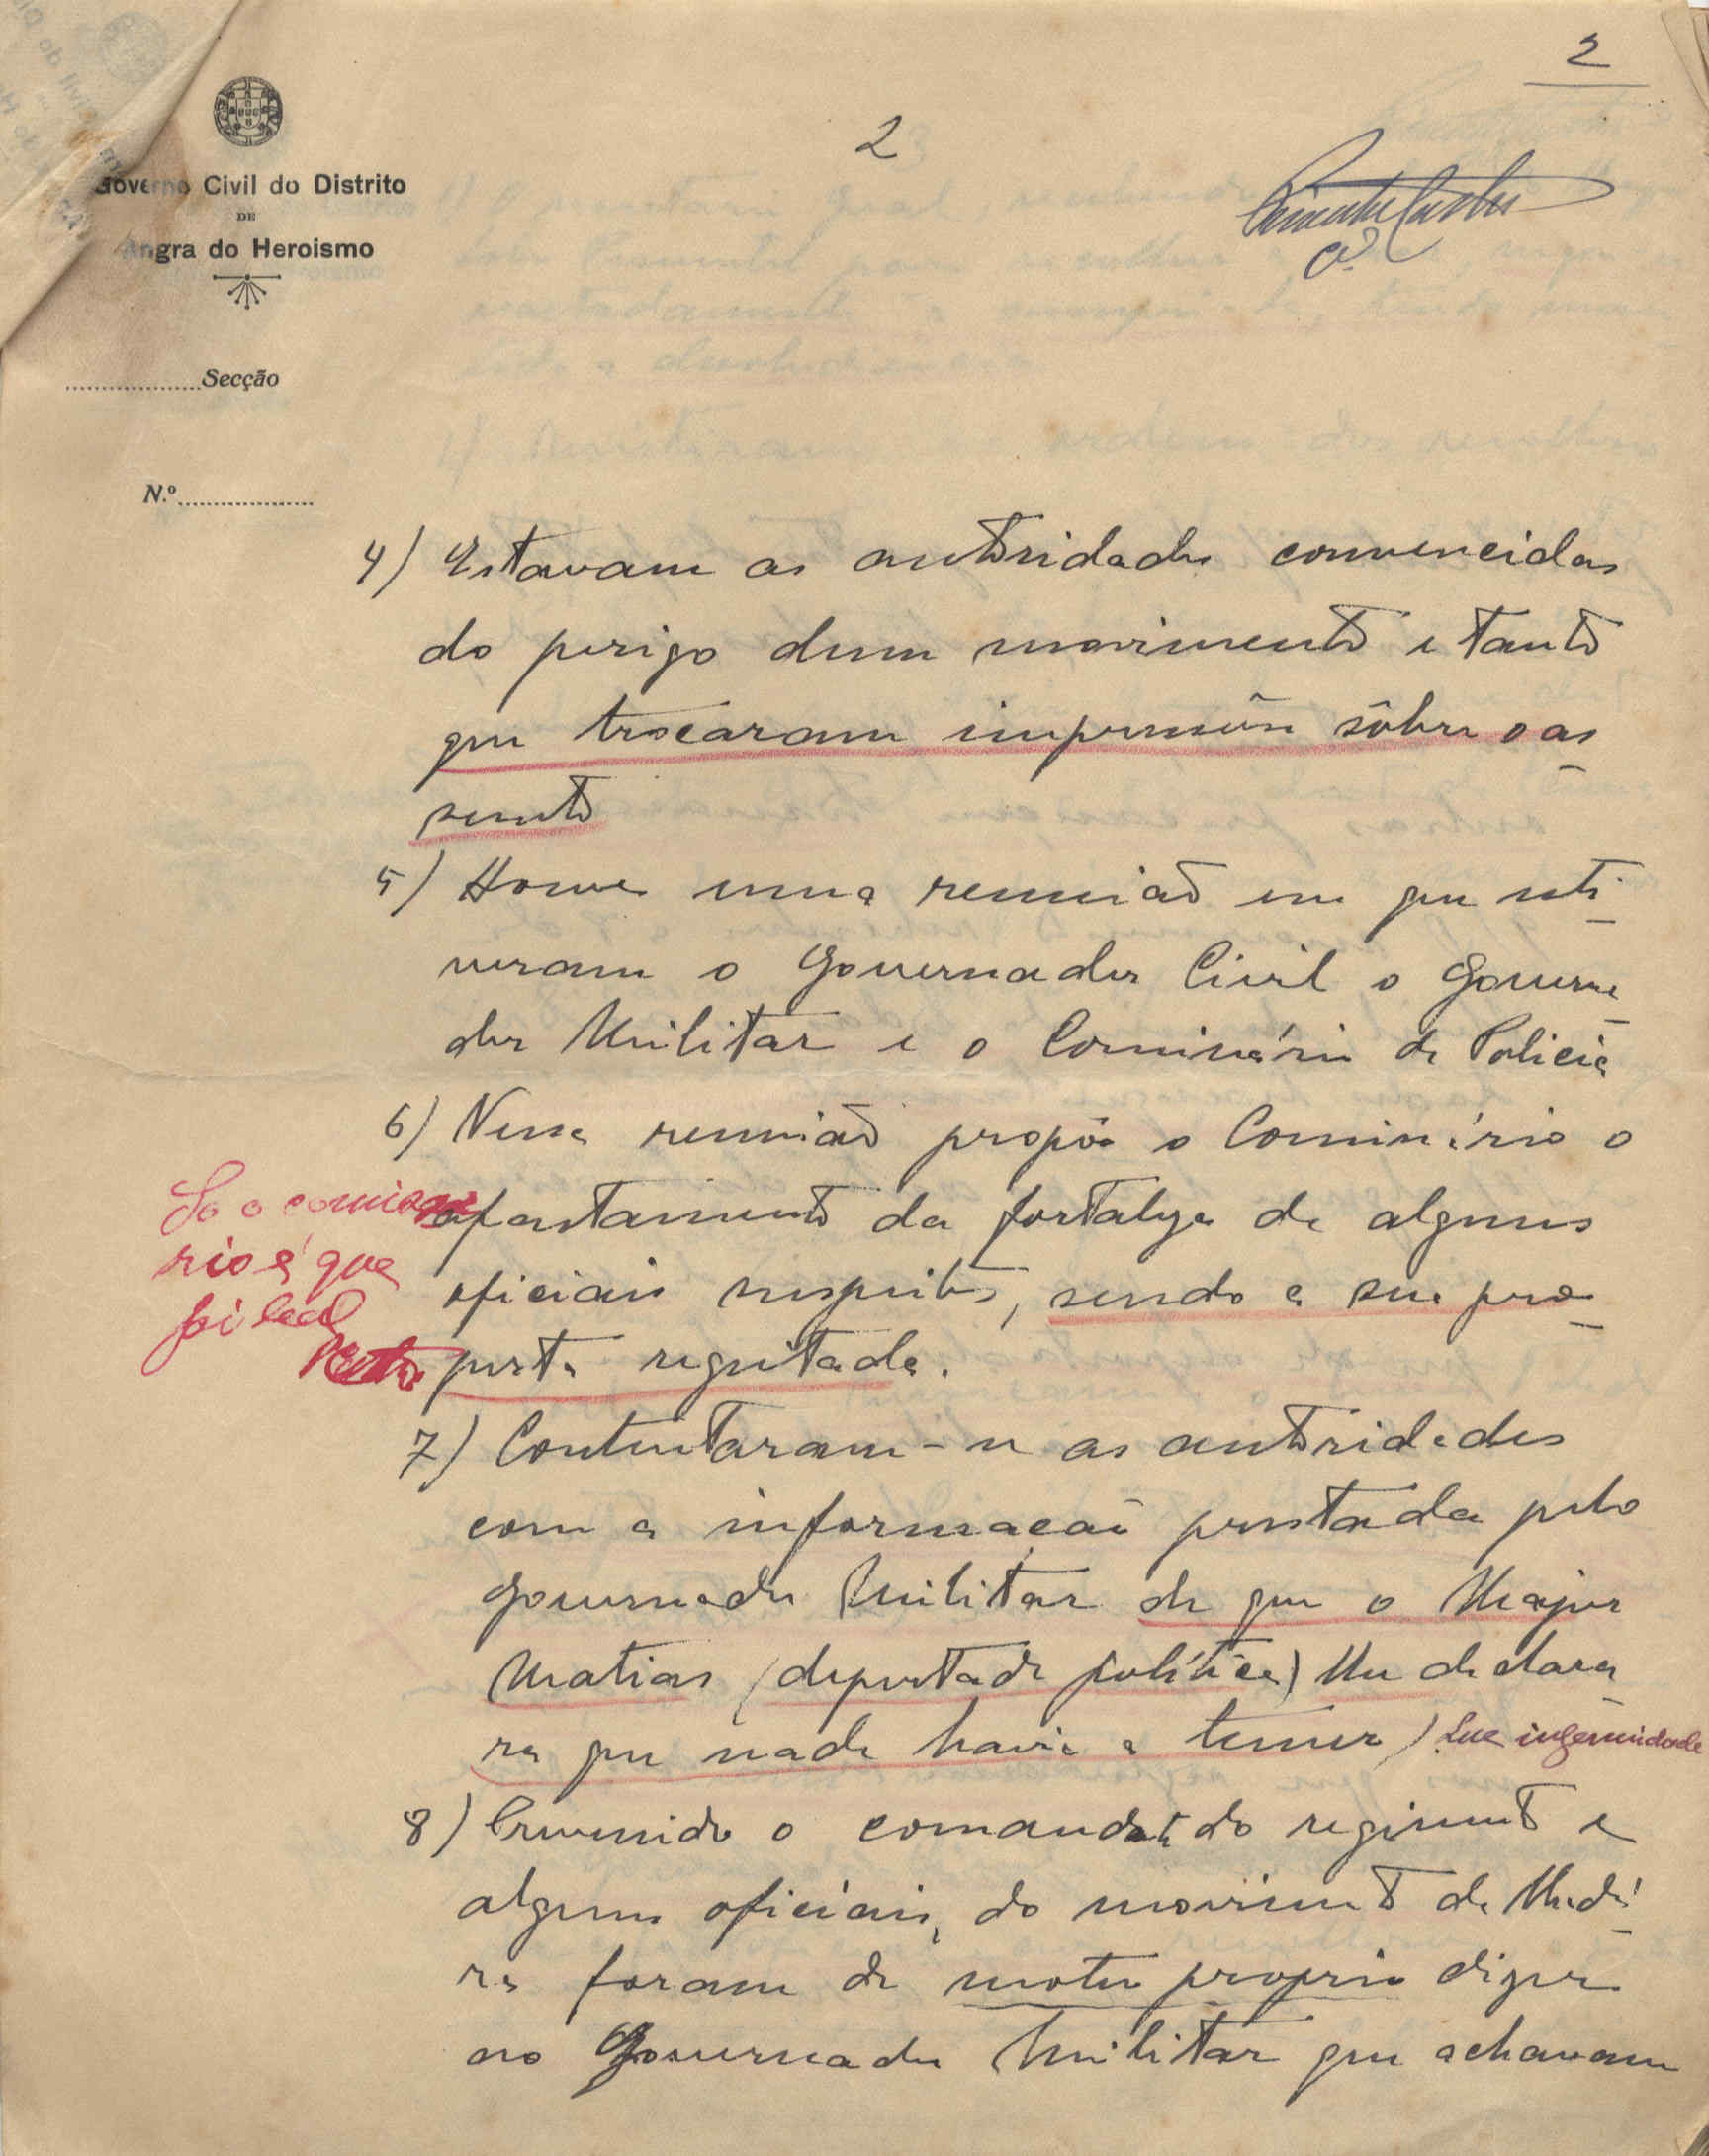 2
2
Governo Civil do Distrito
DE
Angra do Heroismo
Secção
N.º
4) Estavam as autoridades convencidas
do perigo dum movimento e tanto
que trocaram impressões sôbre o as-
sunto
5) Houve uma reunião em que esti-
veram o Governador Civil o Governa-
dor Militar e o Comissário de Policia
6) Nessa reunião propôs o Comissário o
afastamento da fortaleza de alguns
oficiais suspeitos, sendo a sua pro-
posta regeitada.
So o comissa
rio é que
foi leal
7) Contentaram-se as autoridades
com a informação prestada pelo
Governador Militar de que o Major
Matias (deportado político) lhe declara-
ra que nada havia a temer) Que ingenuidade
8) Prevenido o comandante do regimento e
alguns oficiais, do movimento da Madei-
ra foram de motu proprio dizer
ao Governador Militar que achavam